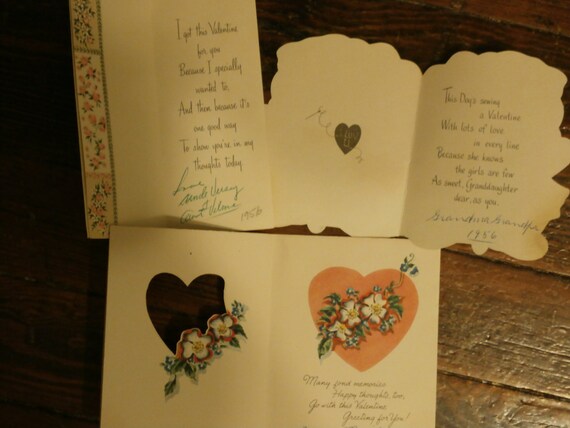 I got this Valentine
for you
Because I specially
wanted to,
And then because it's
one good way
To show you're in my
thoughts today
Love
Uncle
Aunt Velma
1956
This Day's sending
a Valentine
With lots of love
in every line
Because she knows
the girls are few
As sweet, Granddaughter
dear, as you.
Grandma & Grandpa
1956
Many fond memories
Happy thoughts, too,
Go with this Valentine
Greeting for You!